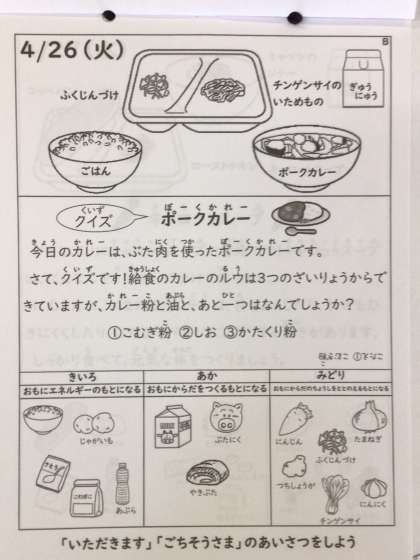 4/26(火)
8
ふくじんづけ
チンゲンサイの
いためもの
ぎゅう
にゅう
ごはん
ポークカレー
くいず
クイズ
ぽーくかれー
ポークカレー
きょう かれー にく つか ぽーくかれー
今日のカレーは、ぶた肉を使ったポークカレーです。
くいず きゅうしょく るう
さて、クイズです!給食のカレーのルウは3つのざいりょうからで
かれー こ あぶら ひと
きていますが、カレー粉と油と、あと一つはなんでしょうか?
こ こ
①こむぎ粉 ②しお ③かたくり粉
きいろ
おもにエネルギーのもとになる
じゃがいも
こむぎこ
あぶら
あか
おもにからだをつくるもとになる
ぶたにく
やきぶた
みどり
おもにからだのちょうしをととのえるもとになる
にんじん
たまねぎ
ふくじんづけ
つちしょうが
にんにく
チンゲンサイ
「いただきます」「ごちそうさま」のあいさつをしよう